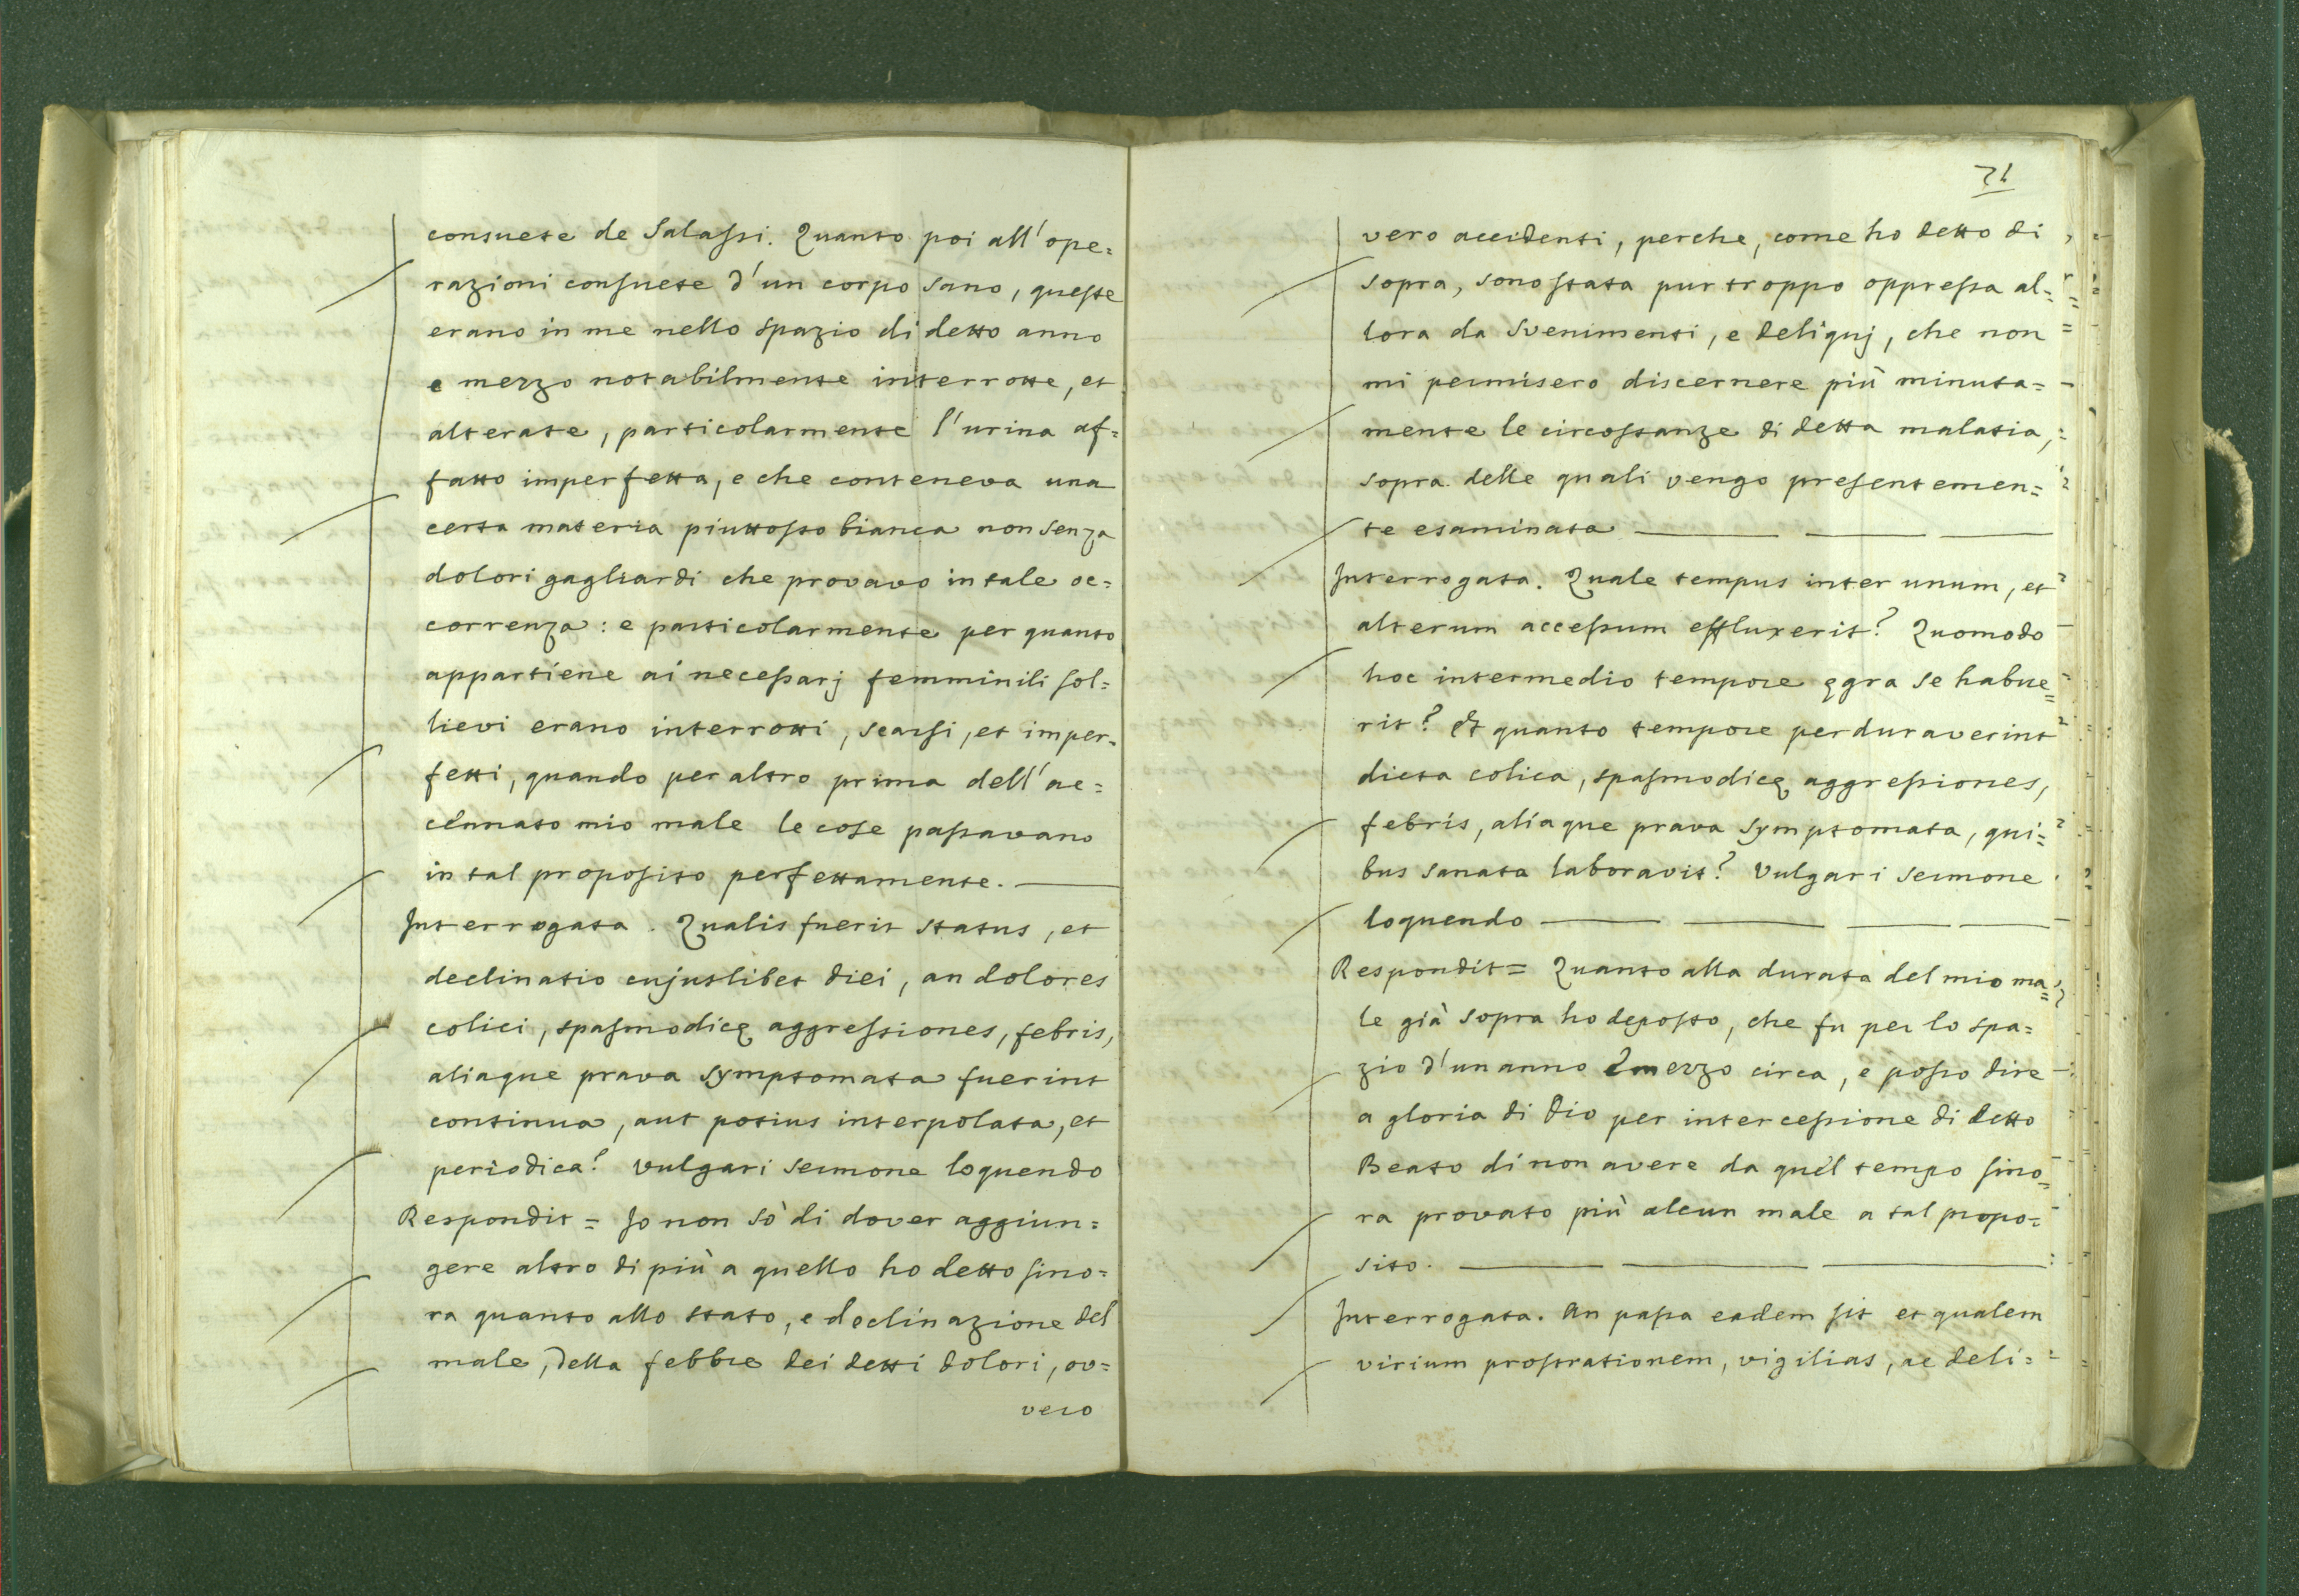 consuete de Salassi. Quanto poi all'ope=
razioni consuete d'un corpo sano, queste
erano in me nello spazio di detto anno
e mezzo notabilmente interrotte, et
alterate, particolarmente l'urina af=
fatto imperfetta, e che conteneva una
certa materia piuttosto bianca non senza
dolori gagliardi che provavo in tale oc=
correnza: e particolarmente per quanto
appartiene ai necessarj femminili sol=
lievi erano interrotti, scarsi, et imper=
fetti, quando per altro prima dell'ac=
cennato mio male le cose passavano
in tal proposito perfettamente.
Interrogata. Qualis fuerit status, et
declinatio cujuslibet diei, an dolores
colici, spasmodicę aggressiones, febris,
aliaque prava symptomata fuerint
continua, aut potius interpolata, et
periodica? vulgari sermone loquendo
Respondit = Io non sò di dover aggiun=
gere altro di più a quello ho detto sino=
ra quanto allo stato, e declinazione del
male, della febbre dei detti dolori, ov=
vero
71
vero accidenti, perche, come ho detto di
sopra, sono stata pur troppo oppressa al=
lora da svenimenti, e deliquj, che non
mi permisero discernere più minuta=
mente le circostanze di detta malatia,
sopra delle quali vengo presentemen=
te esaminata
Interrogata. Quale tempus inter unum, et
alterum accessum effluxerit? Quomodo
hoc intermedio tempore ęgra se habue=
rit? Et quanto tempore perduraverint
dicta colica, spasmodicę aggressiones,
febris, aliaque prava symptomata, qui=
bus sanata laboravit? Vulgari sermone
loquendo
Respondit = Quanto alla durata del mio ma=
le già sopra ho deposto, che fu per lo spa=
zio d'un anno e mezzo circa, e posso dire
a gloria di Dio per intercessione di detto
Beato di non avere da quel tempo sino=
ra provato più alcun male a tal propo=
sito.
Interrogata. An passa eadem sit et qualem
virium prostrationem, vigilias, ac deli=